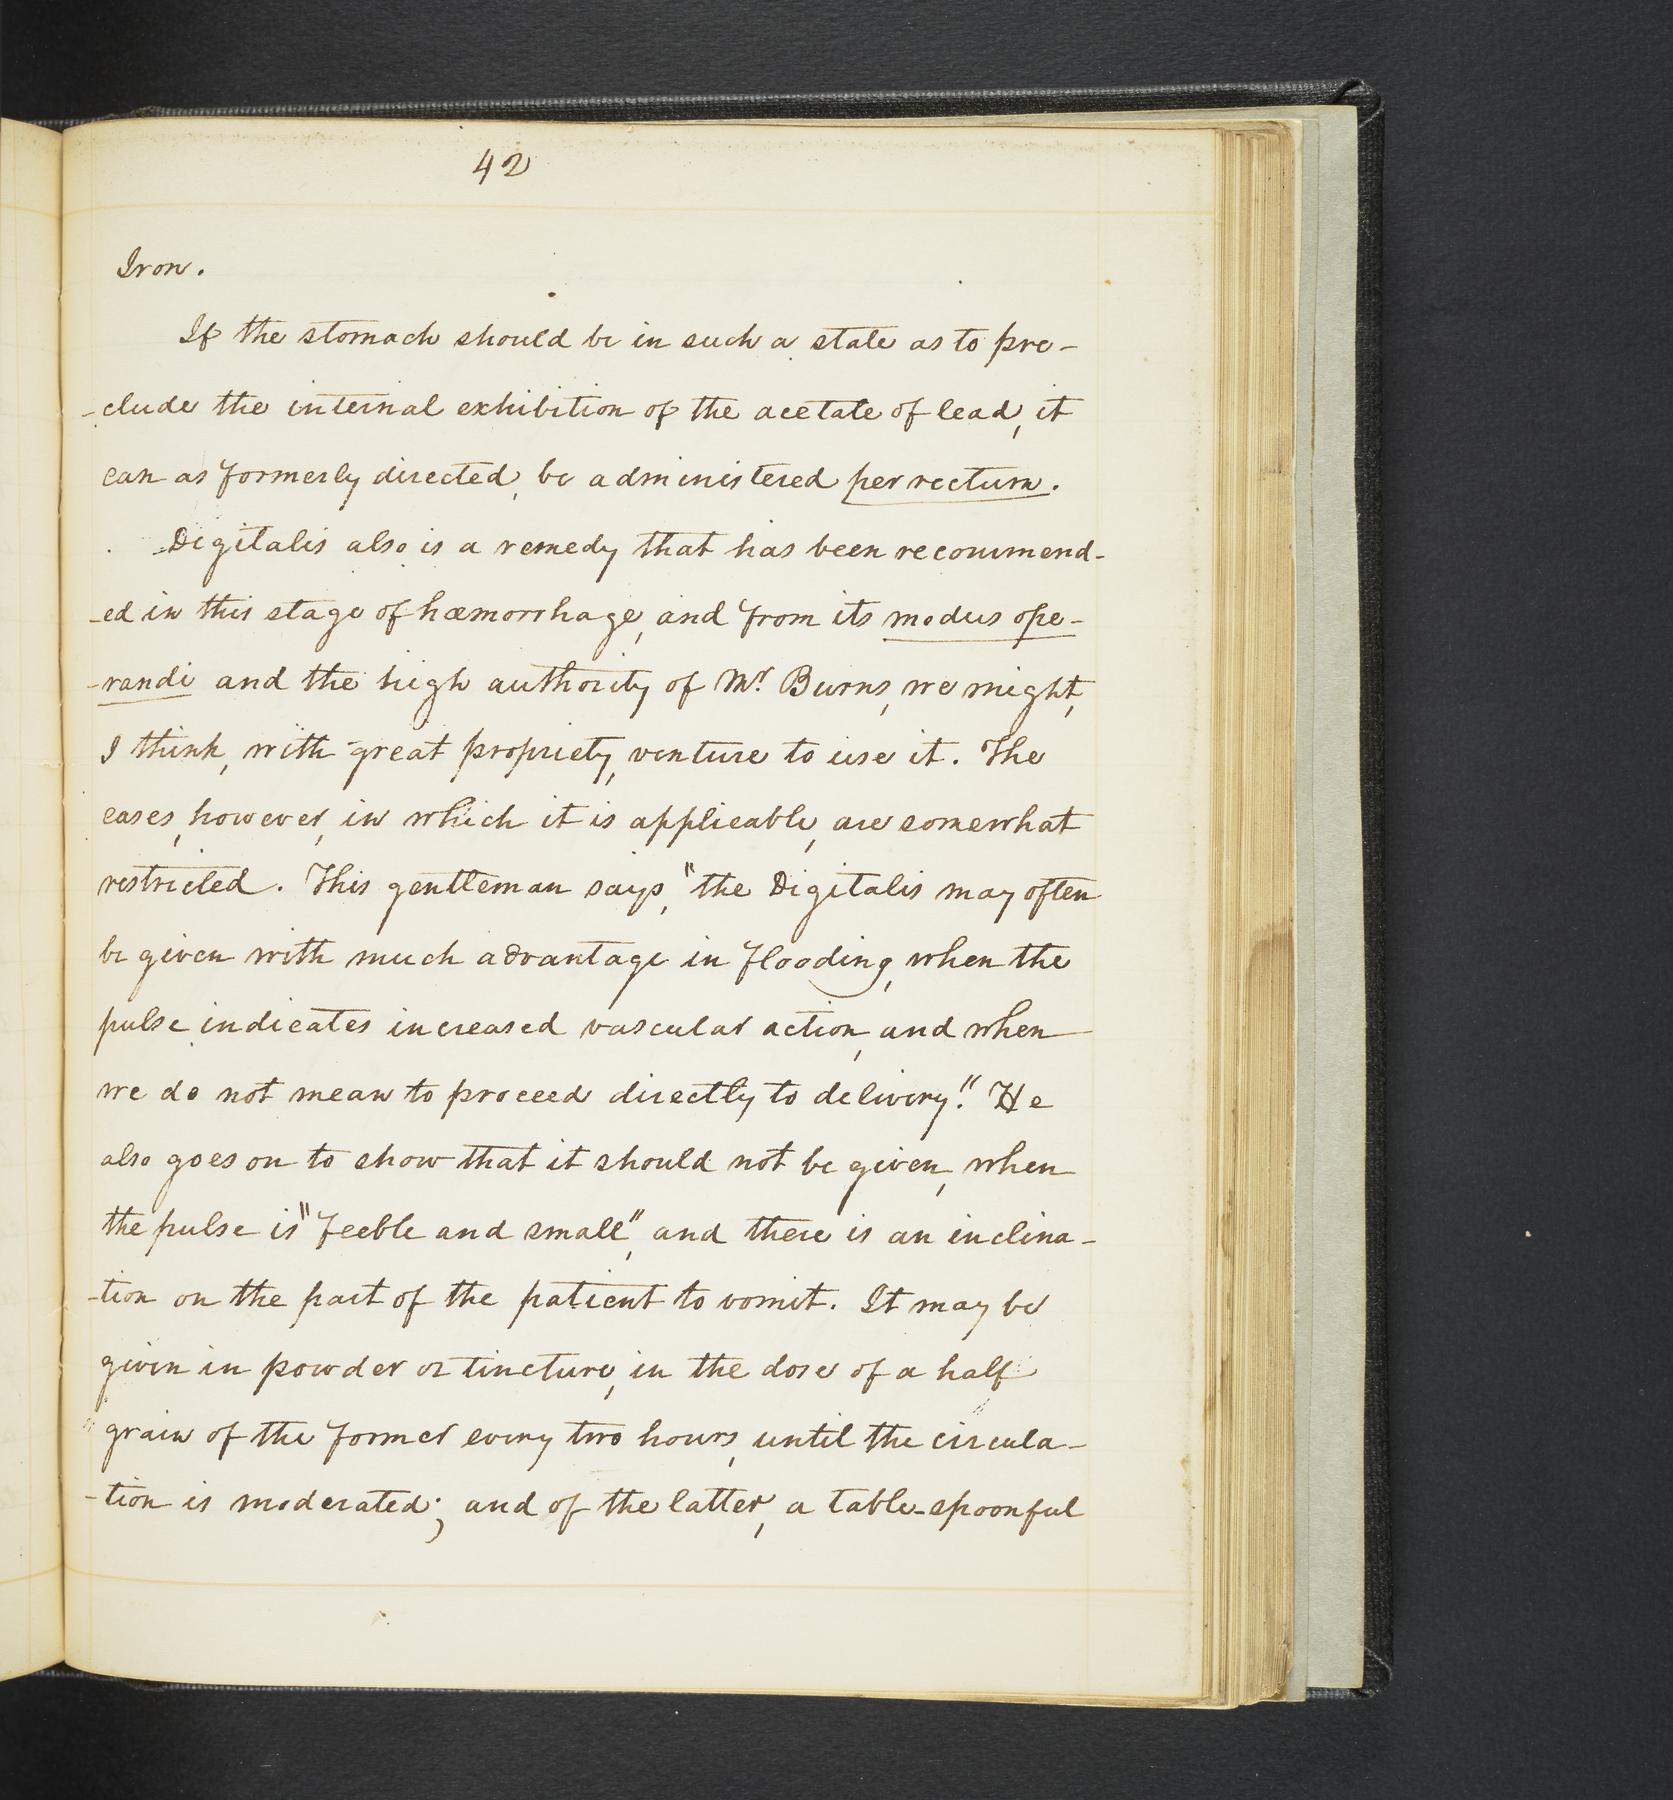 42
Iron.
If the stomach should be in such a state as to pre-
-clude the internal exhibition of the acetate of lead, it
can as formerly directed, be administered per rectum.
Digitalis also is a remedy that has been recommend-
-ed in this stage of hæmorrhage, and from its modus ope-
-randi and the high authority of Mr Burns, we might,
I think, with great propriety, venture to use it. The
cases, however, in which it is applicable, are somewhat
restricted. This gentleman says, "the Digitalis may often
be given with much advantage in flooding, when the
pulse indicates increased vascular action, and when
we do not mean to proceed directly to delivery." He
also goes on to show that it should not be given, when
the pulse is "feeble and small", and there is an inclina-
-tion on the part of the patient to vomit. It may be
given in powder or tincture, in the dose of a half
grain of the former every two hours, until the circula-
-tion is moderated; and of the latter, a table-spoonful